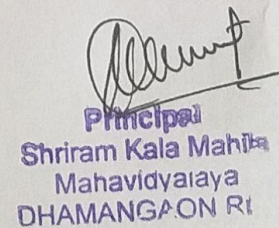 Principal
Shriram Kala Mahila
Mahavidyalaya
DHAMANGAON